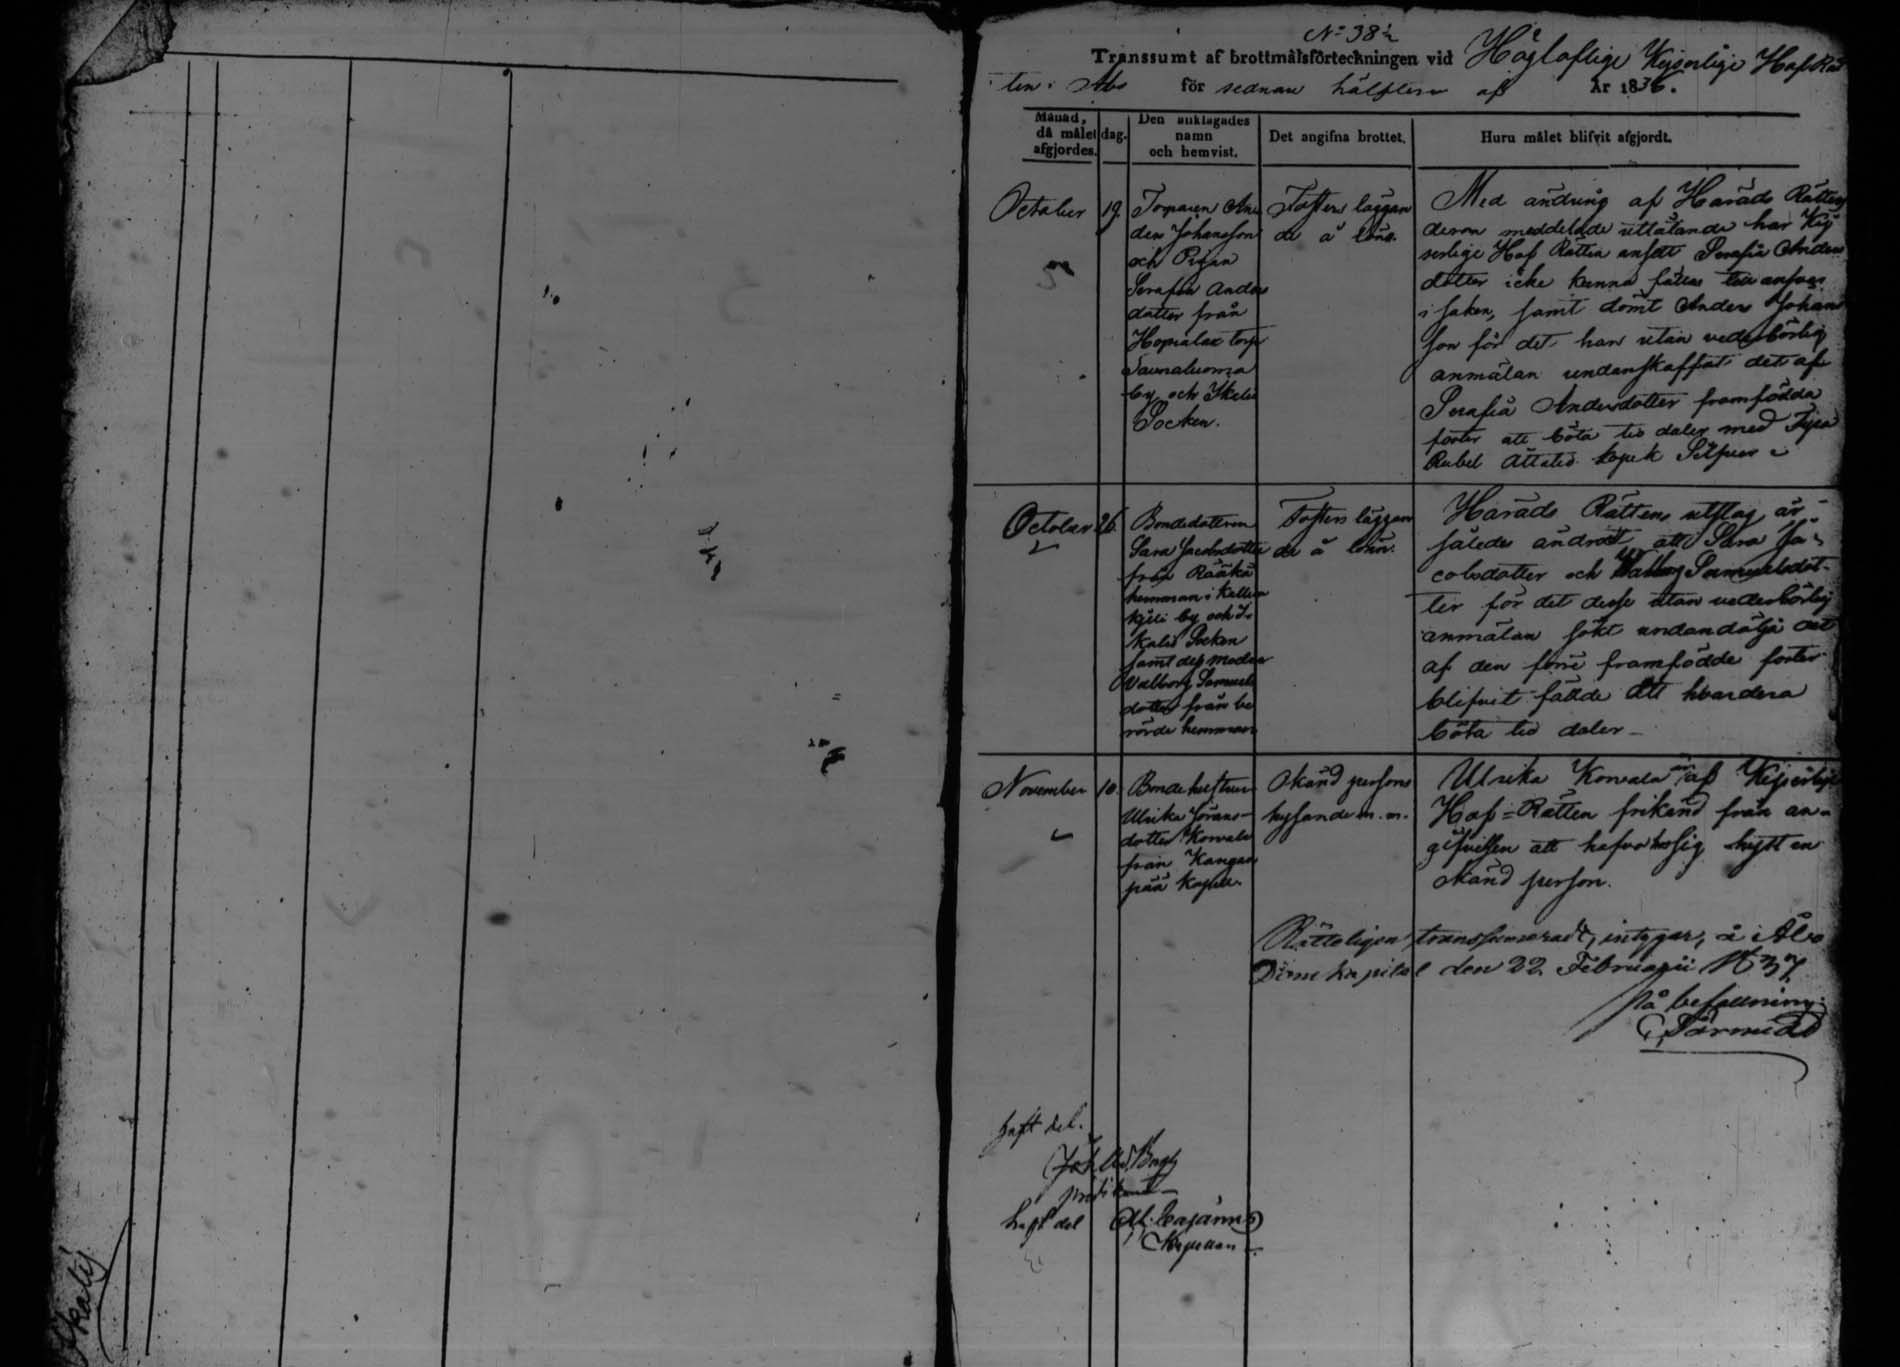 No 38½
Transsumt af brottmålsförteckningen vid Högloflige Kejserlige Hof Rät
ten i Åbo för sednare hälften af År 1836.
Månad, då målet afgjordes.
dag.
Den anklagades namn och hemvist.
Det angifna brottet.
Huru målet blifvit afgjordt.
October
19.
Torparen An
ders Johansson
och Pigan
Serafia Anders
dotter från
torp
by och Ikalis
Socken.
Fosters läggan
de å lönn.
Med ändring af Härads Rättens
derom meddelade utlåtande har Kej
serlige Hof Rätten ansett Serafia Anders
dotter icke kunna fällas till ansvar
i saken, samt dömt Anders Johans
son för det han utan vederbörlig
anmälan undanskaffat det af
Serafia Andersdotter framfödda
foster att böta tio daler med Fyra
Rubel Åttatio kopek Silfver
October
26.
Bondedottren
Sara Jacobsdotter
från Rääkä
hemman i
by och I-
kalis Socken
samt des moder
Valborg Samuels
dotter från be
rörde hemman
Fosters läggan
de å lönn.
Härads Rättens utslag är
således ändradt att Sara Ja-
cobsdotter och Walborg Samuelsdot-
ter för det desse utan vederbörlig
anmälan sökt undandölja det
af den förre framfödde foster
blifvit fällde att hvardera
böta tio daler –
November
10.
Bondehustrun
Ulrika Jörans-
dotter Korvala
från Kangas
pää Kapell.
Okänd persons
hysande m. m.
Ulrika Korvala är af Kejserlige
Hof-Rätten frikänd från an-
gifvelsen att hafva hos sig hyst en
okänd person.
Rätteligen transsumeradt, intygar, å Åbo
Domkapitel den 22 Februarii 1837
På befallning:
haft del.
Joh.
predikant
haft del
Cajanus
Kapellan
Ikalis